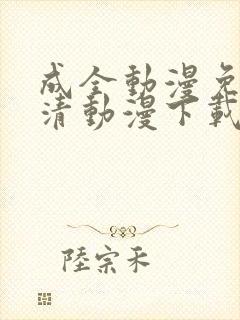 成全動漫免
清動漫下載
陸宗禾